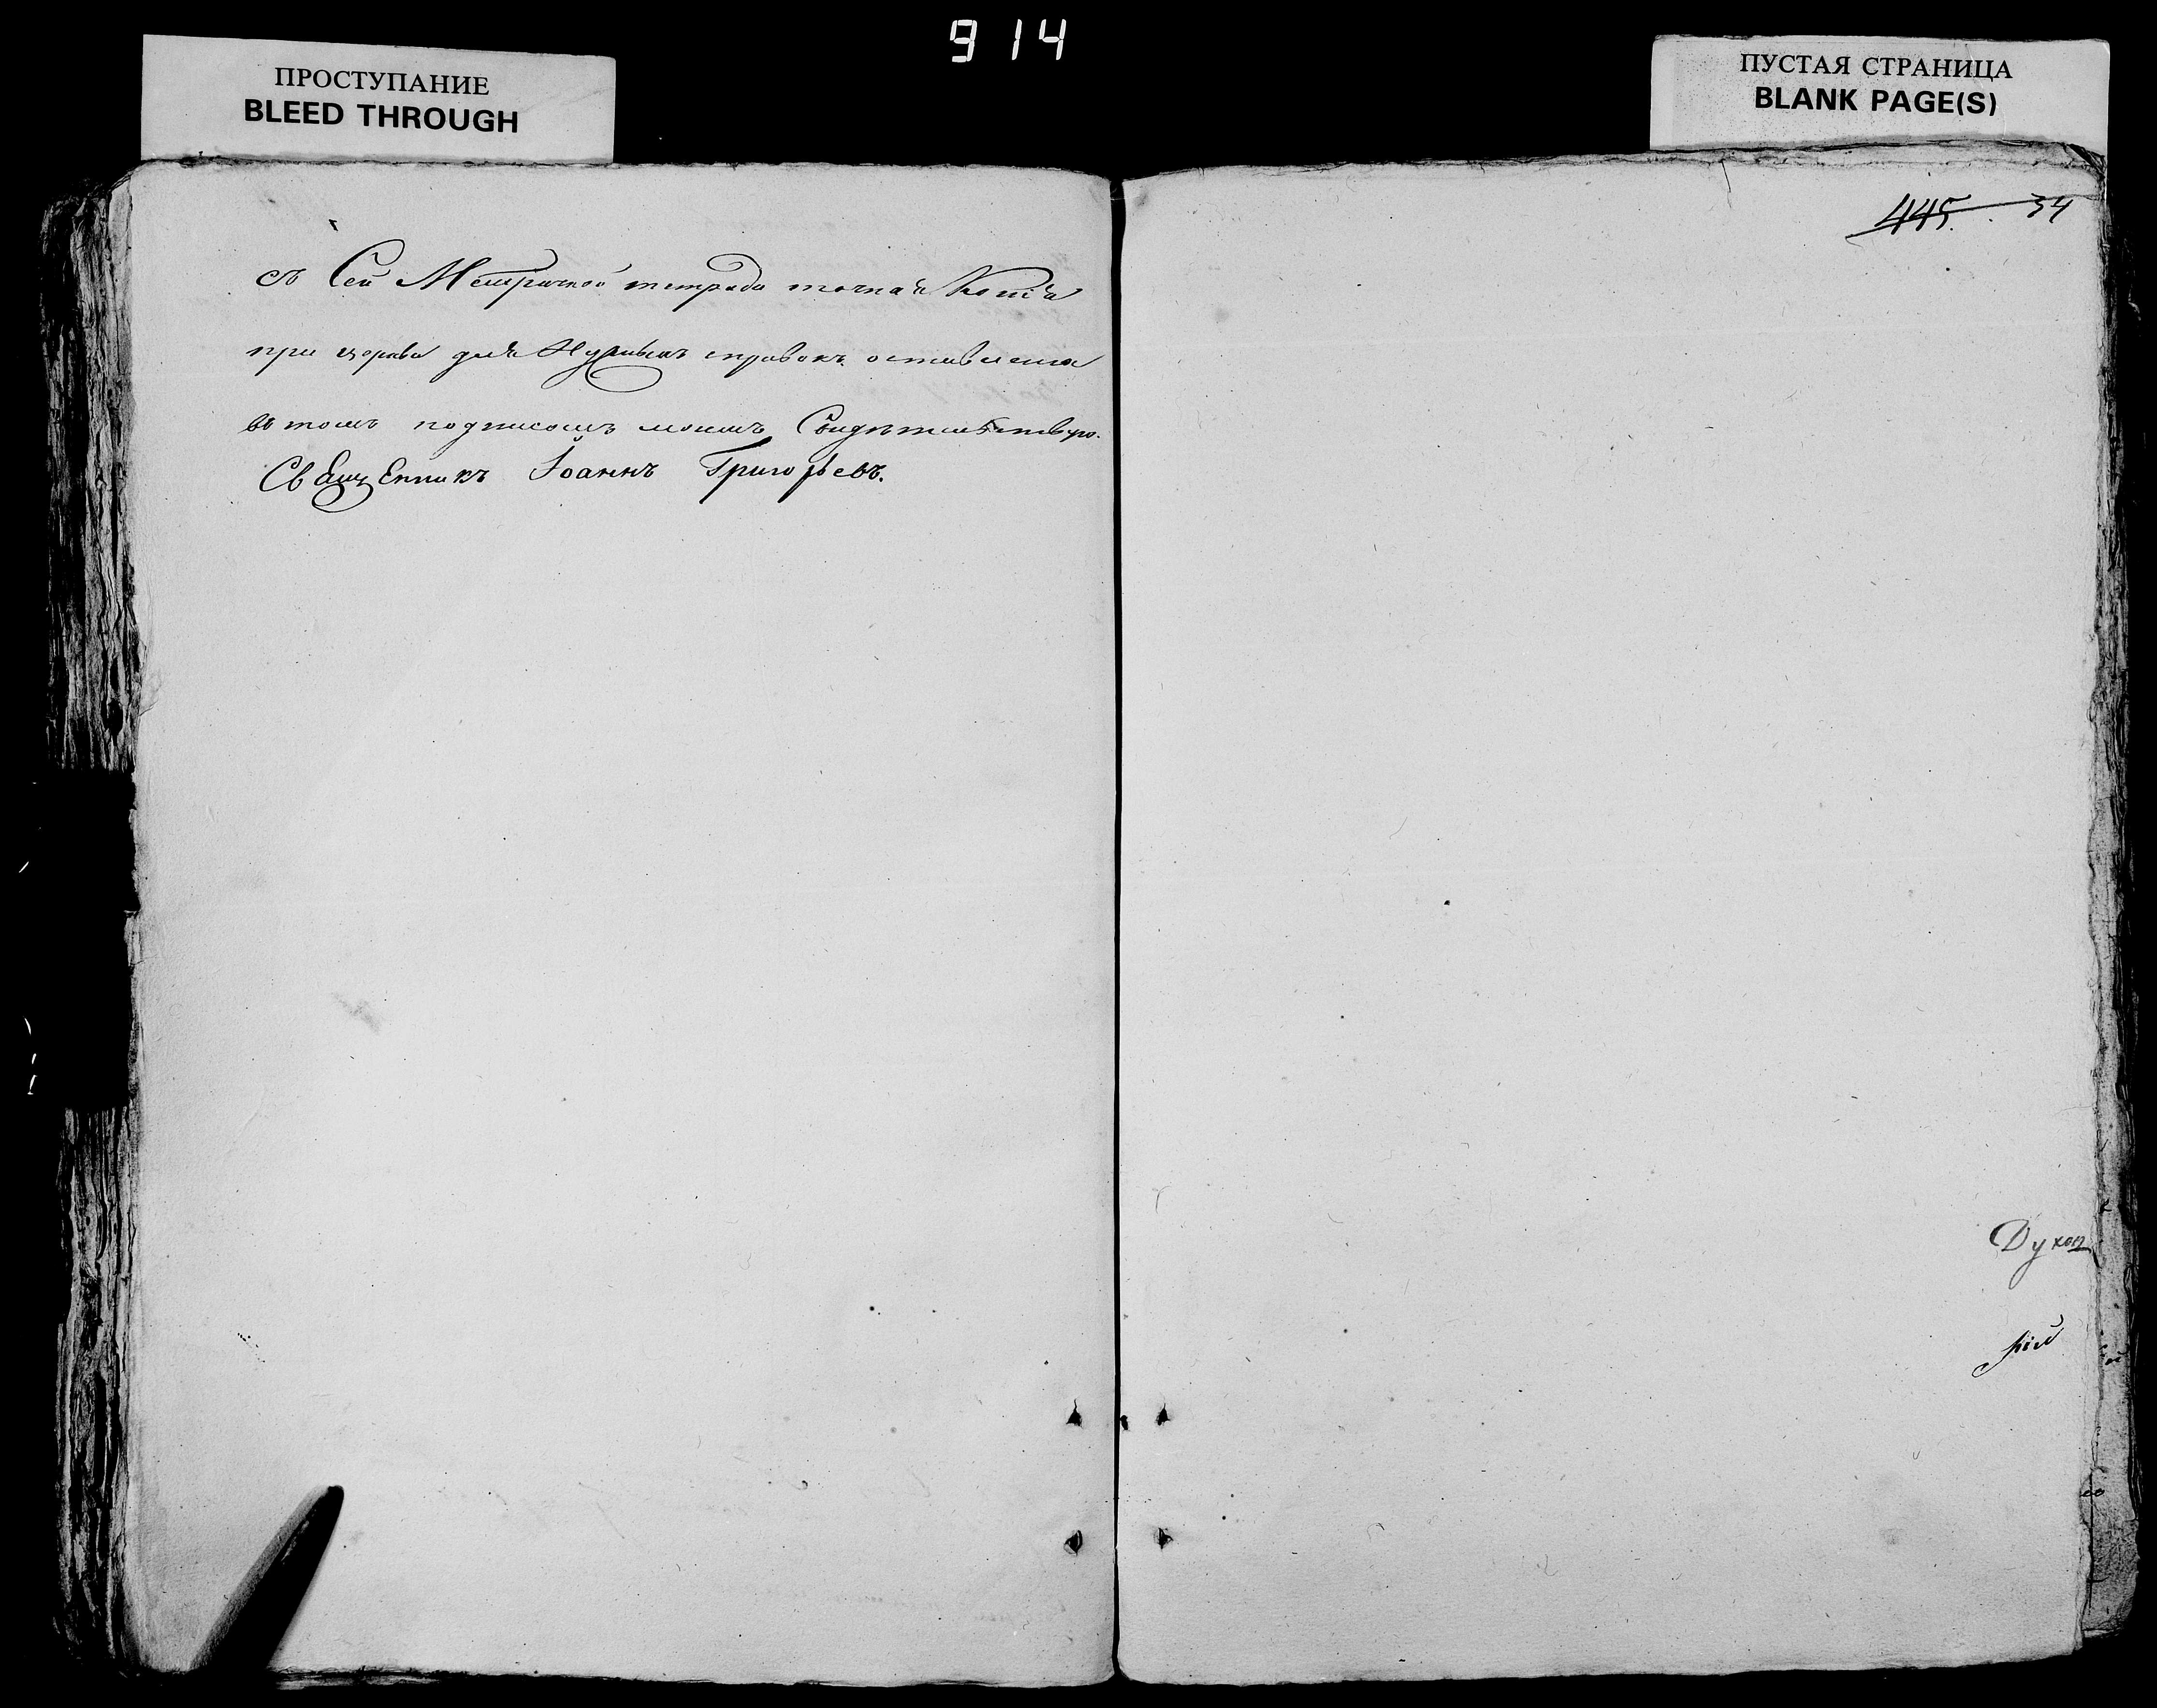 914
ПРОСТУПАНИЕ
BLEED THROUGH
ПУСТАЯ СТРАНИЦА
BLANK PAGE(S)
съ Сей Метричной тетради точная Копія
при церкви для Нужныхъ справокъ оставлена
въ томъ подписомъ моимъ Свидѣтельствую.
Священникъ Іоаннъ Григорьевъ.
445. 34
Духов
рій